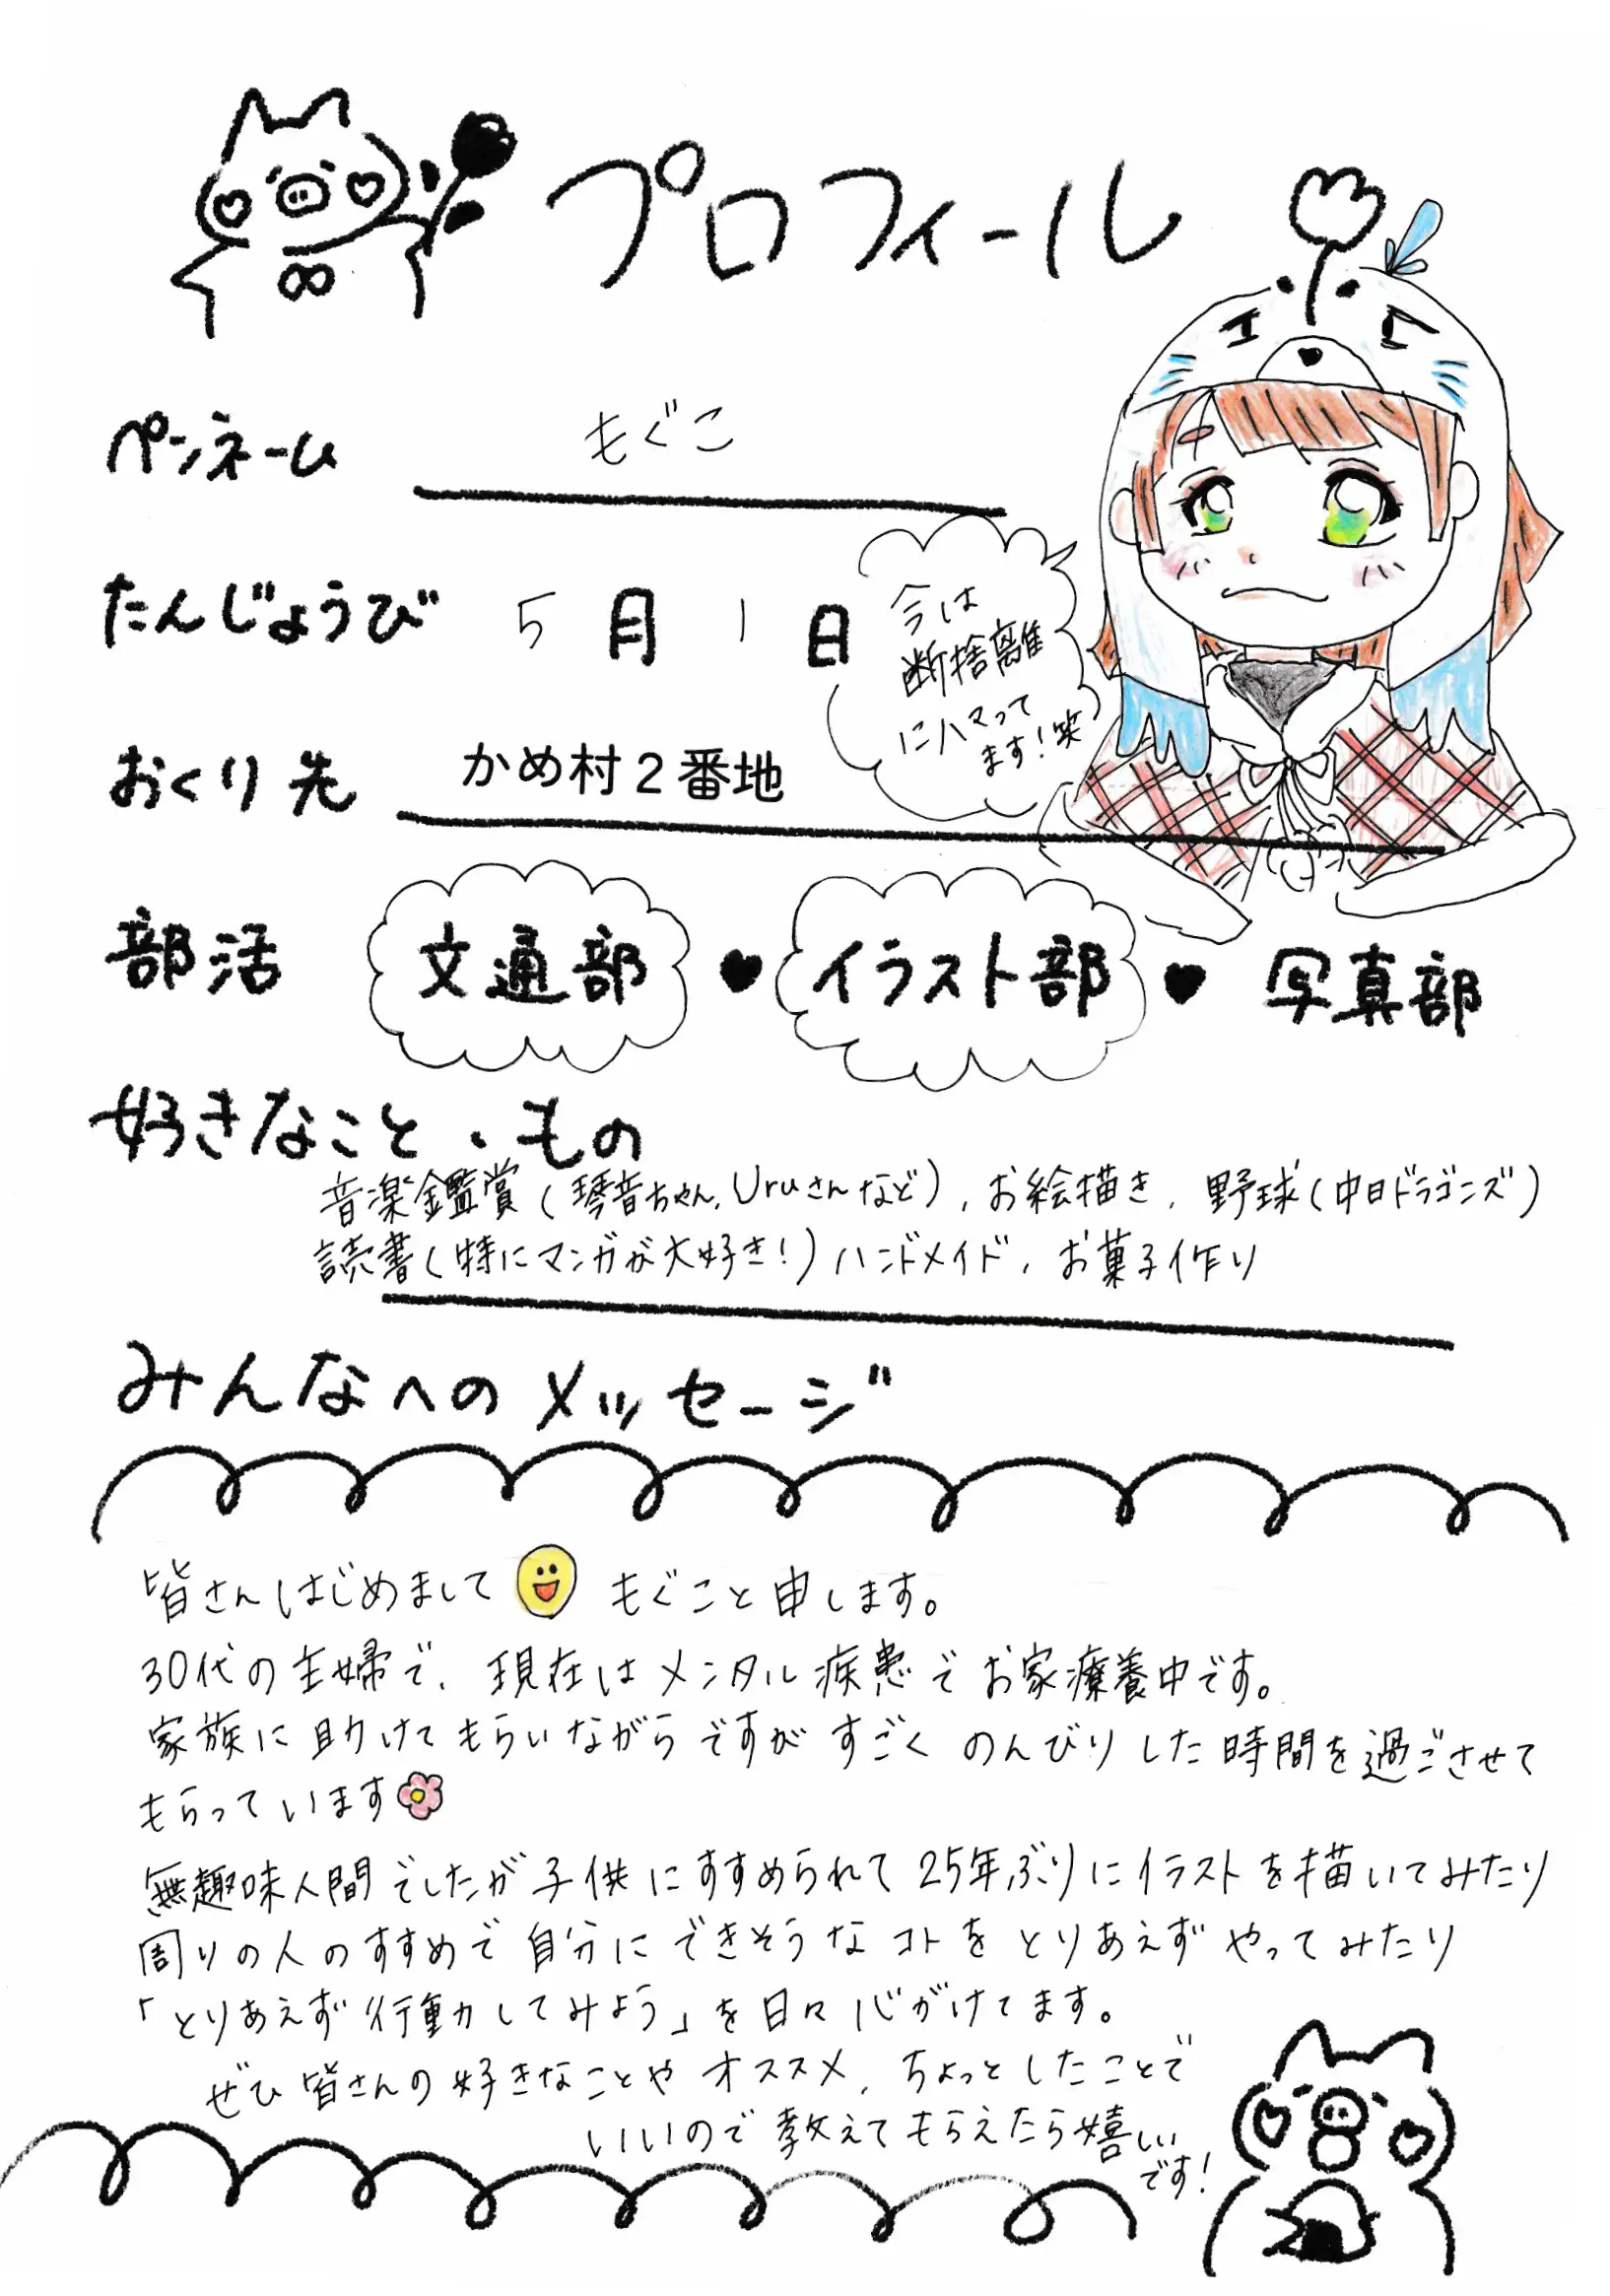 プロフィール
ペンネーム もぐこ
たんじょうび 5月1日
今は
断捨離
にハマって
ます!笑
おくり先 かめ村2番地
部活 文通部 ♥ イラスト部 ♥ 写真部
好きなこと・もの
音楽鑑賞(琴音ちゃん,Uruさんなど),お絵描き,野球(中日ドラゴンズ)
読書(特にマンガが大好き!)ハンドメイド,お菓子作り
みんなへのメッセージ
皆さんはじめまして もぐこと申します。
30代の主婦で、現在はメンタル疾患でお家療養中です。
家族に助けてもらいながらですがすごくのんびりした時間を過ごさせて
もらっています
無趣味人間でしたが子供にすすめられて25年ぶりにイラストを描いてみたり
周りの人のすすめで自分にできそうなコトをとりあえずやってみたり
「とりあえず行動してみよう」を日々心がけてます。
ぜひ皆さんの好きなことやオススメ、ちょっとしたことで
いいので教えてもらえたら嬉しい
です!